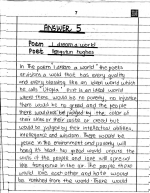 ANSWER 5
Poem I dream a world
Poet Langston Hughes
In the poem "I dream a world" the poets
envisions a world that has every quality
and every blessing like an ideal world which
he calls "Utopia". But is an ideal world
where there would be no poverty, no injustice
there would be no greed and the people
there wouldn't be judged by the color of
their skin or their caste or creed but
would be judged by their intellectual abilities,
intelligence and wisdom. There would be
peace in the environment and poverty will
the walls of the people and love will spread
like fragrance in the air the people there
would love each other and hate would
be vanished from the world. There would